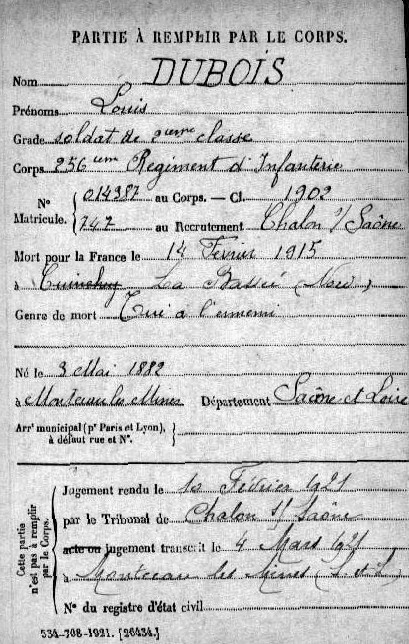 PARTIE À REMPLIR PAR LE CORPS.
Nom DUBOIS
Prénoms Louis
Grade soldat de 2eme classe
Corps 256eme Régiment d'Infanterie
N° Matricule. { 014387 au Corps. — Cl. 1902
747 au Recrutement Chalon s/ Saône
Mort pour la France le 14 Février 1915
à Cuinchy La Bassée (Nord)
Genre de mort Tué à l'ennemi
Né le 3 Mai 1882
à Montceau les Mines Département Saône et Loire
Arrt municipal (pr Paris et Lyon), à défaut rue et N°. }
Cette partie n'est pas à remplir par le Corps.
Jugement rendu le 10 Février 1921
par le Tribunal de Chalon s/ Saône
acte ou jugement transcrit le 4 Mars 1921
à Montceau les Mines (S. et L.)
N° du registre d'état civil
534-708-1921. [26434.]